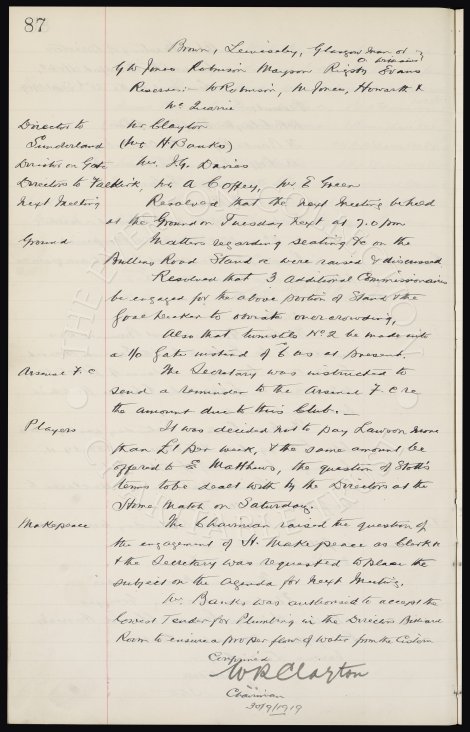 87
Brown, Lewis, Glasgow man or
G W Jones Robinson Mayson Rigsby Evans
Reserves:- W Robinson, W Jones, Howarth &
Mc
Director to Mr Clayton
Sunderland (Mr H Banks)
Director on Gate Mr J.G. Davies
Directors to Falkirk, Mr A Coffey, Mr E Green
Next Meeting Resolved that the next Meeting be held
at the Ground on Tuesday next at 7.0 pm
Ground Matters regarding seating &c on the
Bullens Road Stand &c were raised & discussed
Resolved that 3 additional Commissionaires
be engaged for the above portion of Stand & the
Goal to obviate overcrowding,
Also that turnstile No 2 be made into
a 1/0 Gate instead of as at present.
Arsenal F.C The Secretary was instructed to
send a reminder to the Arsenal F.C re
the amount due to this Club.
Players It was decided not to pay Lawson more
than £1 per week, & the same amount be
offered to E Matthews, the question of Stott's
terms to be dealt with by the Directors at the
Home match on Saturday.
Makepeace The Chairman raised the question of
the engagement of H. Makepeace as Clerk &c
& the Secretary was requested to place the
subject on the Agenda for next Meeting.
Mr Banks was authorised to accept the
lowest Tender for Plumbing in the Directors
Room to ensure a proper flow of water from the Cistern
Confirmed
W R Clayton
Chairman
30/9/1919